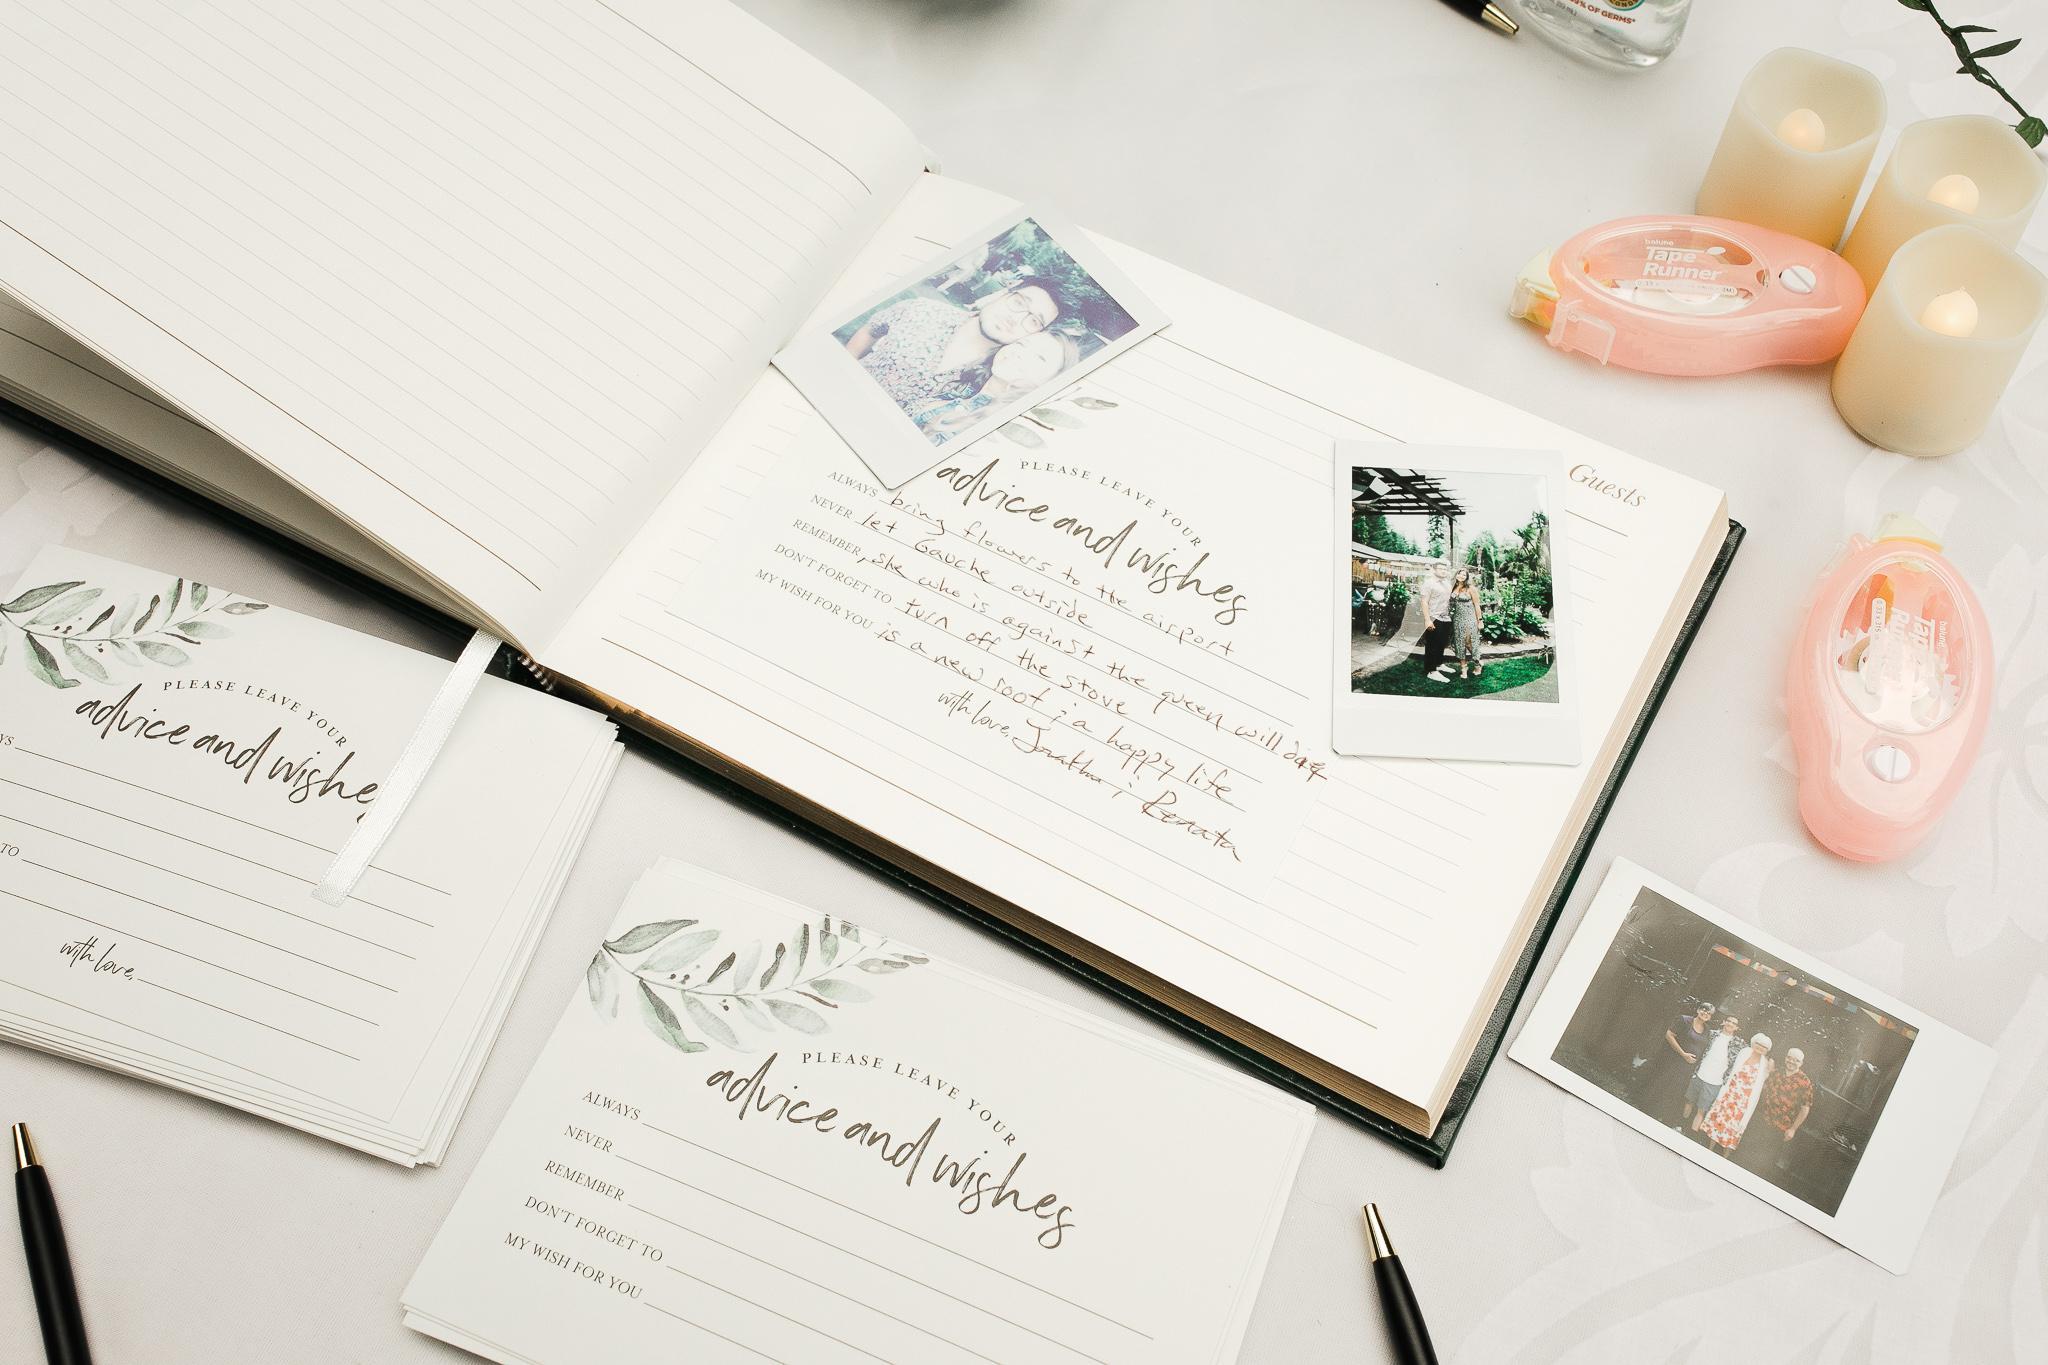 99% OF GERMS*
balune
Tape
Runner
Guests
PLEASE LEAVE YOUR
advice and wishes
ALWAYS bring flowers to the airport
NEVER let Gauche outside
REMEMBER, she who is against the queen will die
DON'T FORGET TO turn off the stove
MY WISH FOR YOU is a new roof & a happy life
with love, Jonathan & Renata
balune
Tape
Ru
PLEASE LEAVE YOUR
advice and wishes
YS
TO
with love,
PLEASE LEAVE YOUR
advice and wishes
ALWAYS
NEVER
REMEMBER
DON'T FORGET TO
MY WISH FOR YOU